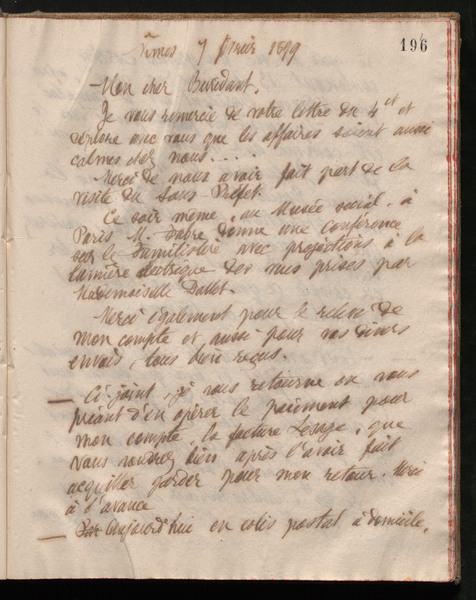 196
Nîmes 7 février 1899
Mon cher Buridant,
Je vous remercie de votre lettre du 4 ct et
déplore avec vous que les affaires soient aussi
calmes chez nous....
Merci de nous avoir fait part de la
visite du Sous-Préfet.
Ce soir même, au Musée social, à
Paris M. Fabre donne une conférence
sur le Familistère avec projections à la
lumière électrique des vues prises par
Mademoiselle Dallet.
Merci également pour le relevé de
mon compte et aussi pour vos divers
envois, tous bien reçus.
— Ci-joint, je vous retourne en vous
priant d'en opérer le paiement pour
mon compte, la facture Lesage, que
vous voudrez bien après l'avoir fait
acquitter garder pour mon retour. Merci
à l'avance
— Par aujourd'hui en colis postal à domicile,